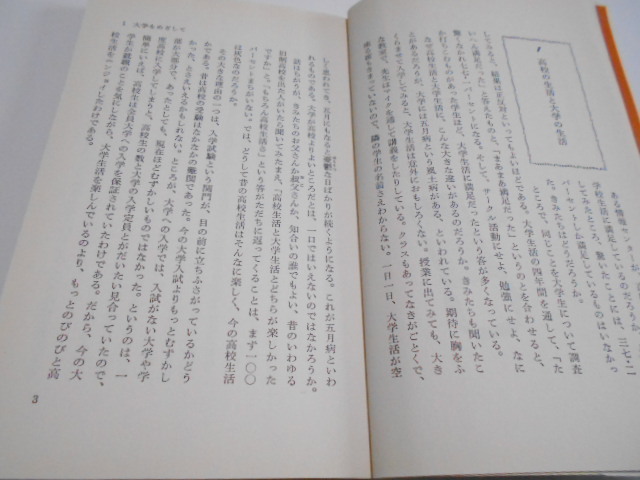 高校の生活と大学の生活
ある情報セン
学校生活に満足しているものはいなかっ
してみたところ、驚いたことには、三七・二
パーセントしか満足しているものはいなかっ
た。きみたちはどうだろうか。
ところで、同じことを大学生について調査
すると、大学生活の四年間を通して、「た
いへん満足だった」と答えたものと、「まあまあ満足だった」というのとを合わせると、
してみると、結果は正反対といってもよいほどである。
驚くなかれ七七・一パーセントになる。そして、サークル活動にせよ、勉強にせよ、なに
かにうちこむもののあった学生ほど、大学生活に満足だったという答が多くなっている。
なぜ高校生活と大学生活に、こんな大きな違いがあるのだろうか。きみたちも聞いたこ
とがあるだろうが、大学には五月病という風土病がある、といわれている。期待に胸をふ
くらませて入学してみると、大学生活は意外におもしろくない。授業に出てみても、大き
な教室で、先生はマイクを通して講義をしたりしている。クラスもあってなきがごとくで、
席もきまっていないので、隣の学生の名前さえわからない。一日一日、大学生活が空
しく思われてき、五月にもなると憂鬱な日ばかりが続くようになる。これが五月病といわ
れるものである。大学が高校よりよいところだとは、一口ではいえないのではなかろうか。
話はちがうが、きみたちのお父さんか叔父さんか、知合いの誰でもよい、昔のいわゆる
旧制高校を出た人がいたら聞いてみたまえ、「高校生活と大学生活とどちらが楽しかった
ですか」と。「もちろん高校生活さ」という答がただちに返ってくることは、まず一〇〇
パーセントまちがいない。では、どうして昔の高校生活はそんなに楽しく、今の高校生活
は灰色なのだろうか。
その大きな理由の一つは、入学試験という関門が、目の前に立ちふさがっているかどう
かである。昔は高校の受験はなかなかの難関であった。今の大学入試よりもっとむずかし
かった、とさえいえるかもしれない。ところが、大学への入学では、入試がない大学や学
部が大部分で、あったとしても、現在ほどむずかしいものではなかった。というのは、一
度高校に入学してしまうと、高校生の数と大学の入学定員とがだいたい見合っていたので、
簡単にいえば、高校生は全員大学への入学を保証されていたわけである。だから、今の大
学生が就職のことを気にしながら、大学生活を楽しんでいるのより、もっとのびのびと高
校生活をエンジョイしたわけである。
1 大学をめざして
3